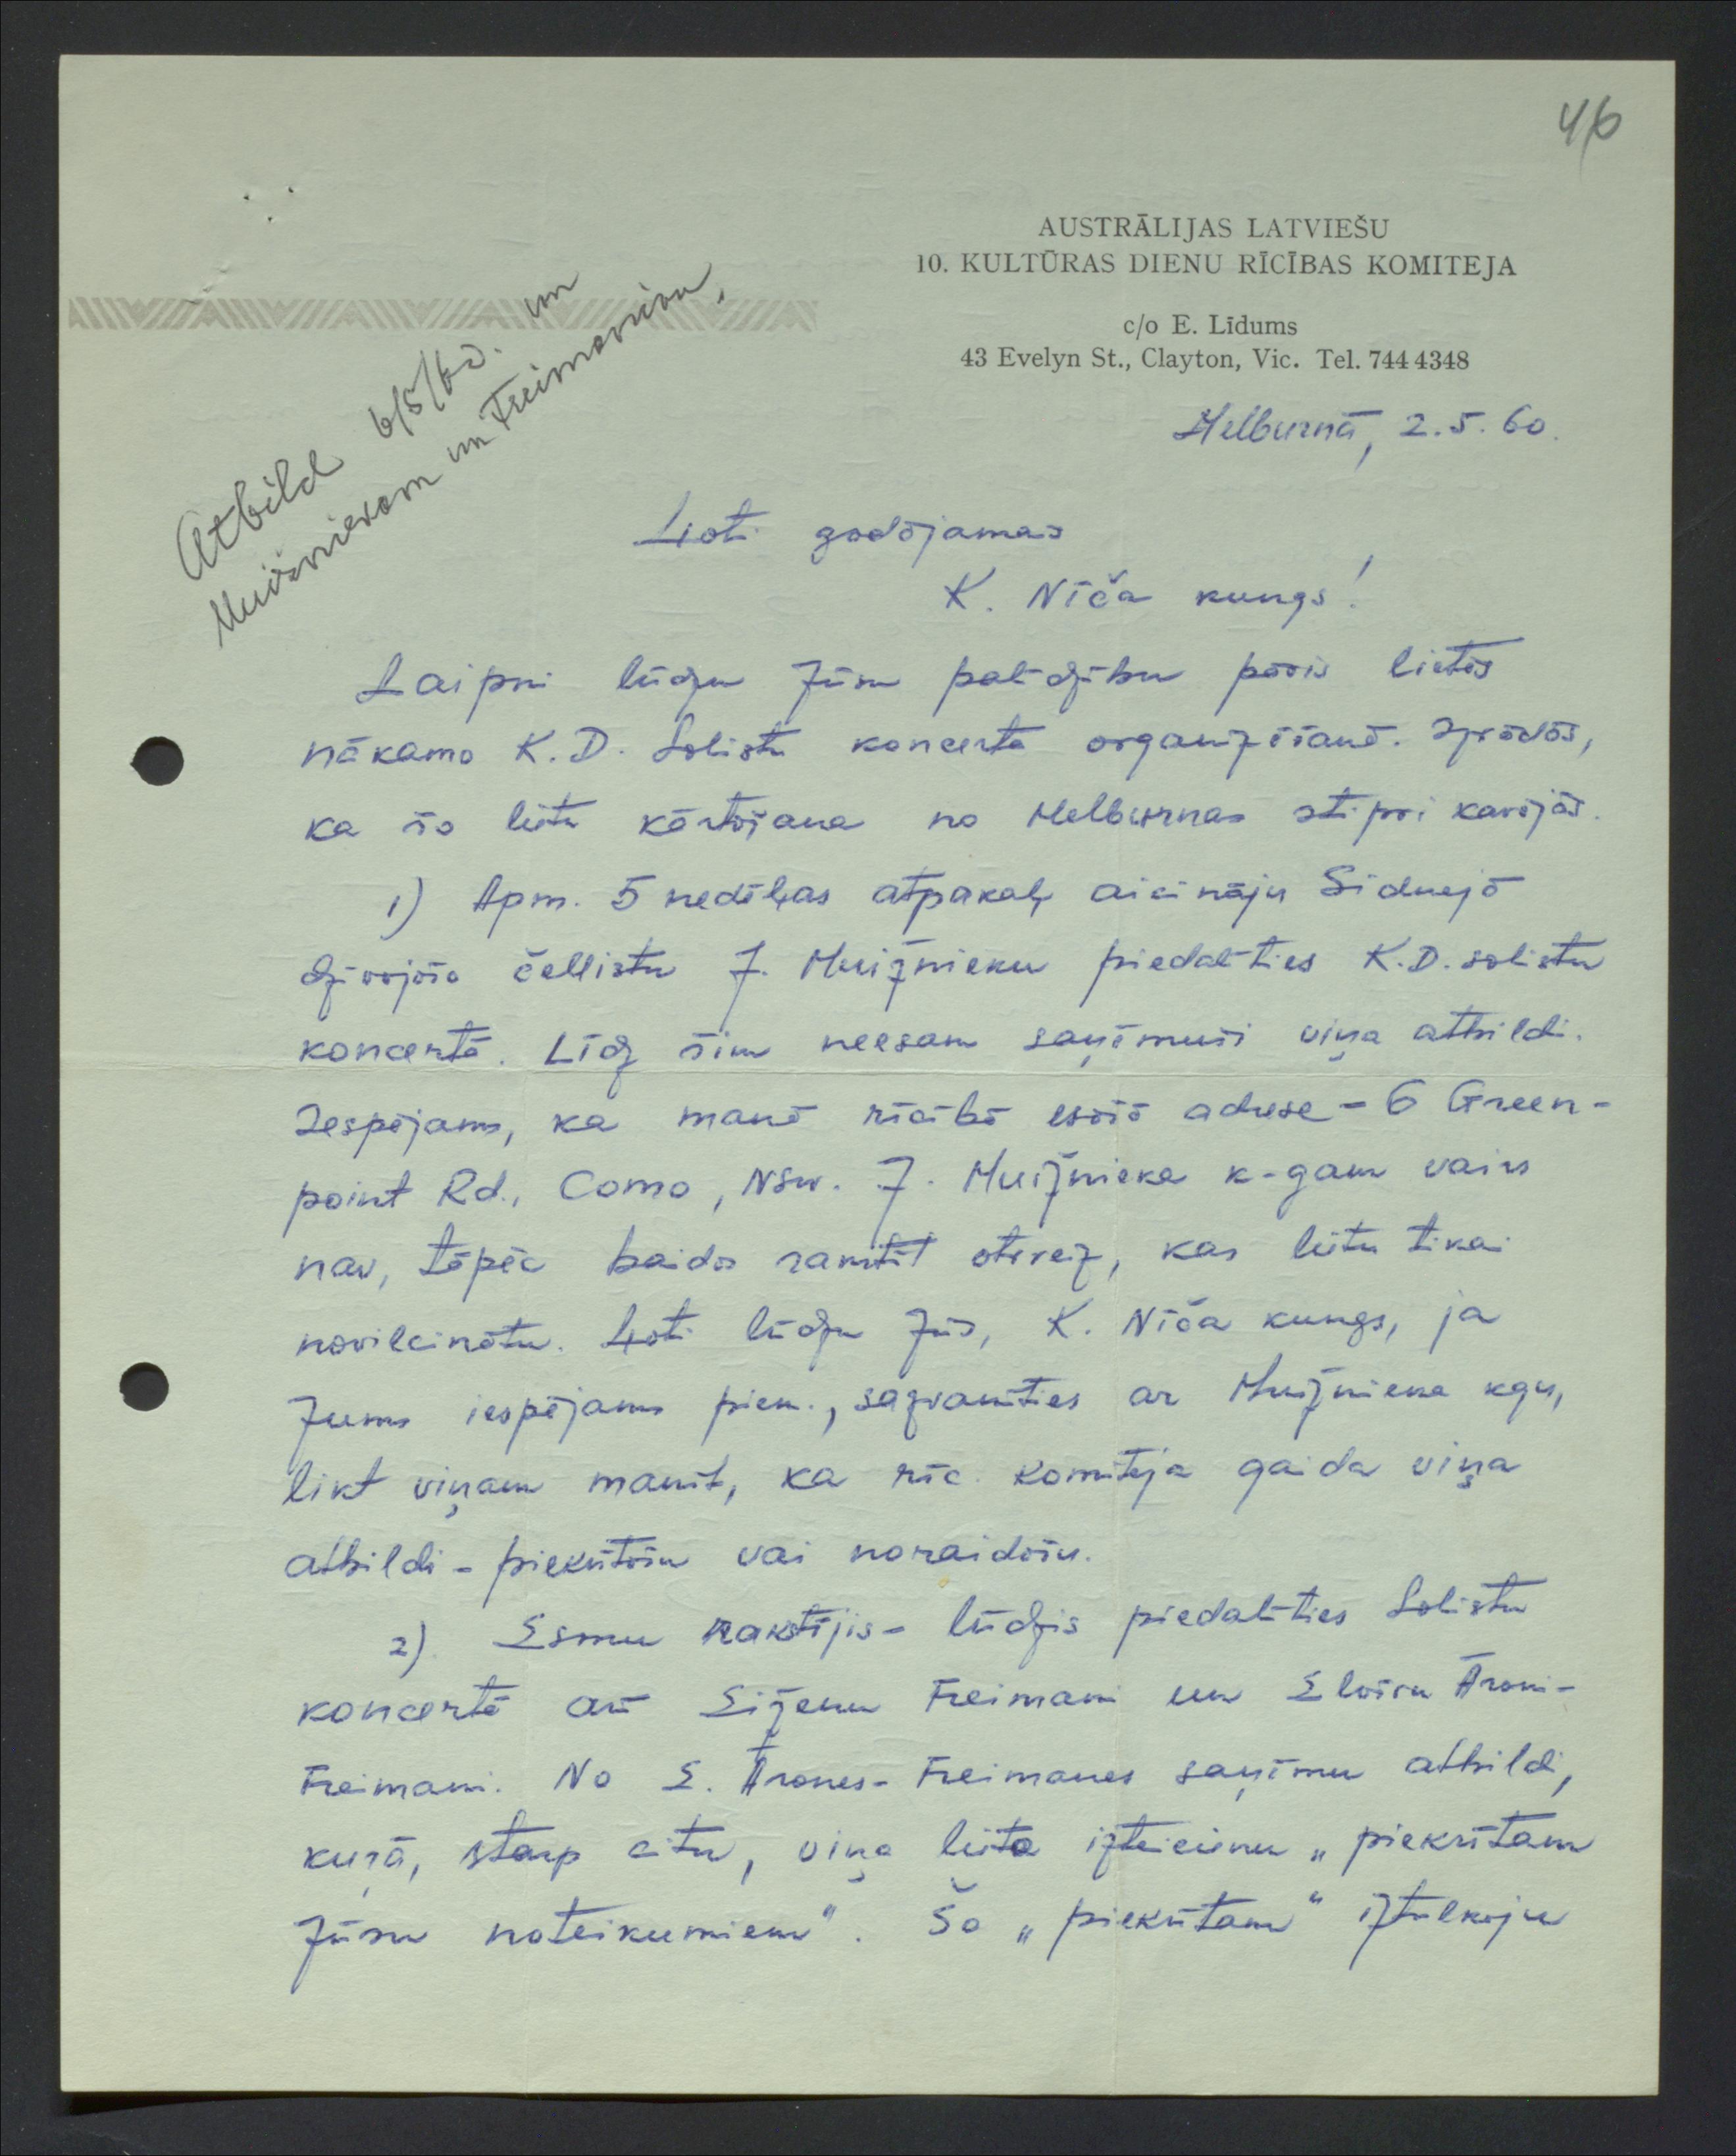 46
AUSTRĀLIJAS LATVIEŠU
10. KULTŪRAS DIENU RĪCĪBAS KOMITEJA
c/o E. Līdums
43 Evelyn St., Clayton, Vic. Tel. 744 4348
Atbild 6/5/60. un
Muižniekam un Freimanim.
Melburnā, 2.5.60.
Ļoti godājamais
K. Nīča kungs!
Laipni lūdzu Jūsu palīdzību pāris lietās
nākamo K.D. Solistu koncerta organizēšanā. Izrādās,
ka šo lietu kārtošana no Melburnas stipri kavējās.
1) Apm. 5 nedēļas atpakaļ aicināju Sidnejā
dzīvojošo čellistu J. Muižnieku piedalīties K.D. solistu
koncertā. Līdz šim neesam saņēmuši viņa atbildi.
Iespējams, ka manā rīcībā esošā adrese - 6 Green-
point Rd., Como, NSW. J. Muižnieka k-gam vairs
nav, tāpēc baidos rakstīt otrreiz, kas lietu tikai
novilcinātu. Ļoti lūdzu Jūs, K. Nīča kungs, ja
Jums iespējams piem., sazvanīties ar Muižnieka kgu,
likt viņam manīt, ka rīc. Komiteja gaida viņa
atbildi - piekrītošu vai noraidošu.
2). Esmu rakstījis - lūdzis piedalīties Solistu
koncertā arī Siženu Freimani un Elvīru Āroni-
Freimani. No E. Ārones-Freimanes saņēmu atbildi,
kuŗā, starp citu, viņa lieto izteicienu „piekrītam
Jūsu noteikumiem". Šo „piekrītam" iztulkoju